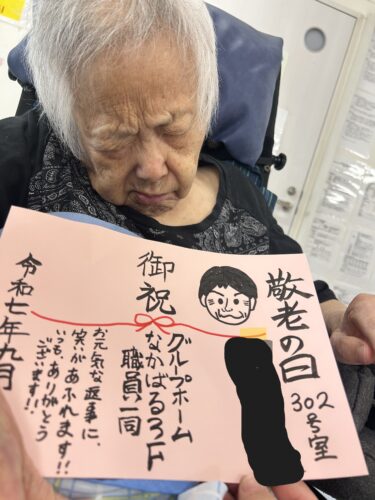 敬老の日
302号室
御祝
グループホーム
なかばる3F
職員一同
お元気な返事に、
笑いがあふれます!!
いつも、ありがとう
ございます!!
令和七年九月